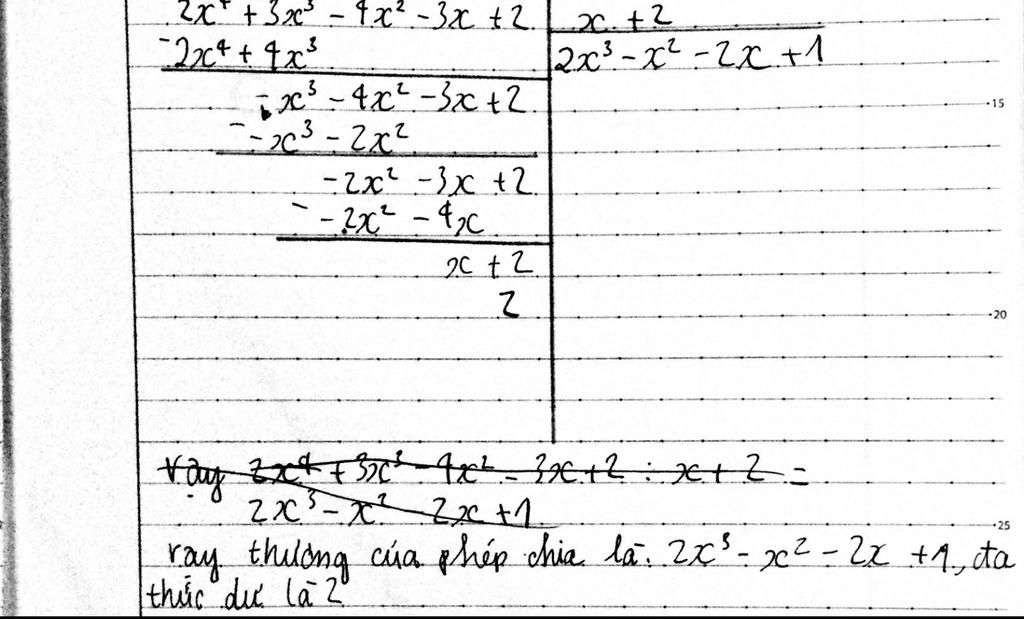 2x⁴ + 3x³ - 4x² - 3x + 2 x + 2
- 2x⁴ + 4x³ 2x³ - x² - 2x + 1
- x³ - 4x² - 3x + 2
15
- - x³ - 2x²
- 2x² - 3x + 2
- - 2x² - 4x
x + 2
2
20
vay 2x⁴ + 3x³ - 4x² - 3x + 2 : x + 2 =
2x³ - x² 2x + 1
25
vay thương của phép chia là: 2x³ - x² - 2x + 1, đa
thức dư là 2